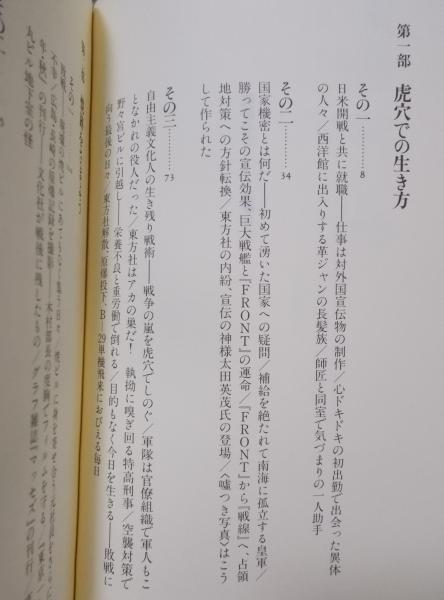 第一部 虎穴での生き方
その一…………8
日米開戦と共に就職――仕事は対外国宣伝物の制作／心ドキドキの初出勤で出会った異体
の人々／西洋館に出入りする革ジャンの長髪族／師匠と同室で気づまりの一人助手
その二…………34
国家機密とは何だ――初めて湧いた国家への疑問／補給を絶たれて南海に孤立する皇軍／
勝ってこその宣伝効果、巨大戦艦と『FRONT』の運命／『FRONT』から『戦線』へ、占領
地対策への方針転換／東方社の内紛、宣伝の神様太田英茂氏の登場／〈嘘つき写真〉はこう
して作られた
その三…………73
自由主義文化人の生き残り戦術――戦争の嵐を虎穴でしのぐ／軍隊は官僚組織で軍人もこ
となかれの役人だった／東方社はアカの巣だ！ 執拗に嗅ぎ回る特高刑事／空襲対策で
野々宮ビルに引越し――栄養不良と重労働で倒れる／目的もなく今日を生きる――敗戦に
向う最後の日々／東方社解散、原爆投下、B―29単機飛来におびえる毎日